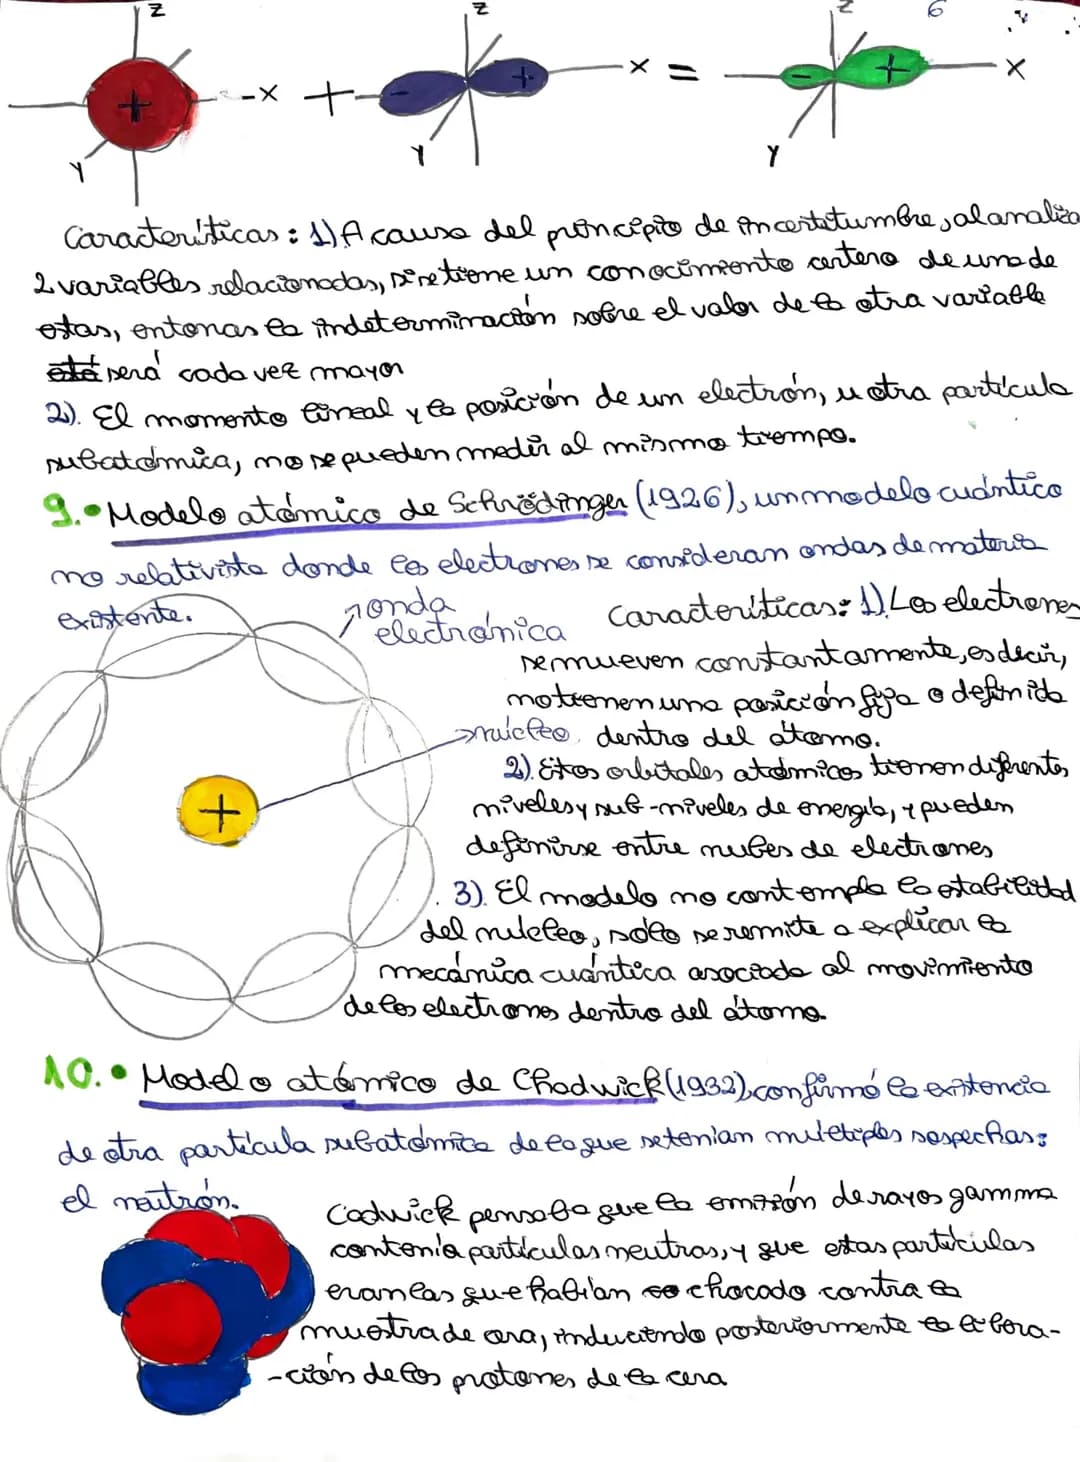 z z z 6
+ --x + - + x = - + x
Y Y Y
Características: 1) A causa del principio de incertitumbre, al analiza
2 variables relacionadas, si se tiene un conocimiento certero de una de
estas, entonces la indeterminación sobre el valor de la otra variable
está será cada vez mayor
2). El momento lineal y la posición de un electrón, u otra partícula
subatómica, no se pueden medir al mismo tiempo.
9. • Modelo atómico de Schrödinger (1926), un modelo cuántico
no relativista donde los electrones se consideran ondas de materia
existente.
onda
electrónica
Características: 1). Los electrones
se mueven constantemente, es decir,
no tienen una posición fija o definida
núcleo dentro del átomo.
2). Estos orbitales atómicos tienen diferentes
niveles y sub-niveles de energía, y pueden
definirse entre nubes de electrones
+
3). El modelo no contempla la estabilidad
del núcleo, sólo se remite a explicar la
mecánica cuántica asociada al movimiento
de los electrones dentro del átomo.
10. • Modelo atómico de Chadwick (1932), confirmó la existencia
de otra partícula subatómica de la que se tenían múltiples sospechas:
el neutrón.
Cadwick pensaba que la emisión de rayos gamma
contenía partículas neutras, y que estas partículas
eran las que habían chocado contra la
muestra de cera, induciendo posteriormente la libera-
-ción de los protones de la cera